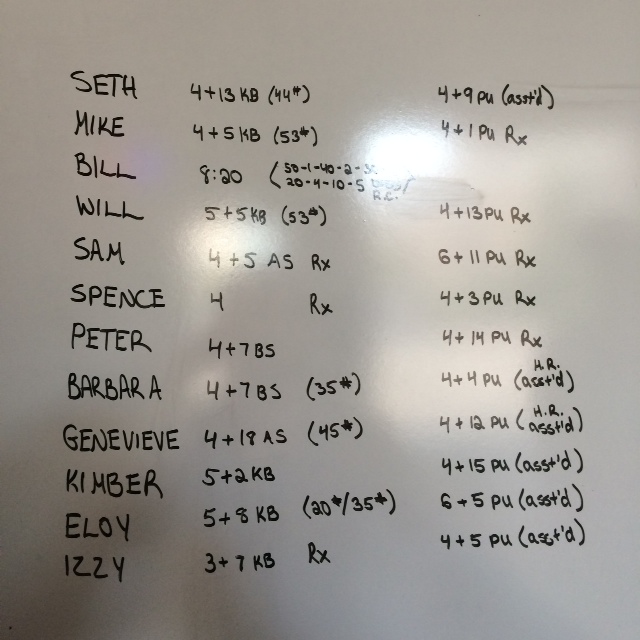 SETH 4+13 KB (44#) 4+9 PU (asst'd)
MIKE 4+5 KB (53#) 4+1 PU Rx
BILL 8:20 (50-1-40-2-30
20-4-10-5
R.C.
WILL 5+5 KB (53#) 4+13 PU Rx
SAM 4+5 AS Rx 6+11 PU Rx
SPENCE 4 Rx 4+3 PU Rx
PETER 4+7 BS 4+14 PU Rx
H.R.
BARBARA 4+7 BS (35#) 4+4 PU (asst'd)
H.R.
GENEVIEVE 4+18 AS (45#) 4+12 PU (asst'd)
KIMBER 5+2 KB 4+15 PU (asst'd)
ELOY 5+8 KB (20#/35#) 6+5 PU (asst'd)
IZZY 3+7 KB Rx 4+5 PU (asst'd)